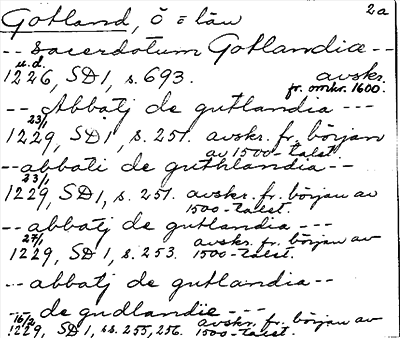 Gotland, ö = län 2a
-- sacerdotum Gotlandiæ --
u.d.
1226, SD 1, s. 693. avskr.
fr. omkr. 1600.
-- Abbatj de gutlandia ---
23/1
1229, SD 1, s. 251. avskr. fr. början
av 1500-talet.
-- abbati de guthlandia --
23/1
1229, SD 1, s. 251. avskr. fr. början av
1500-talet.
-- abbatj de gutlandia ---
27/1 avskr. fr. början av
1229, SD 1, s. 253. 1500-talet.
-- abbatj de gutlandia --
-- de gudlandie ---
16/2 avskr. fr. början av
1229, SD 1, ss. 255, 256. 1500-talet.